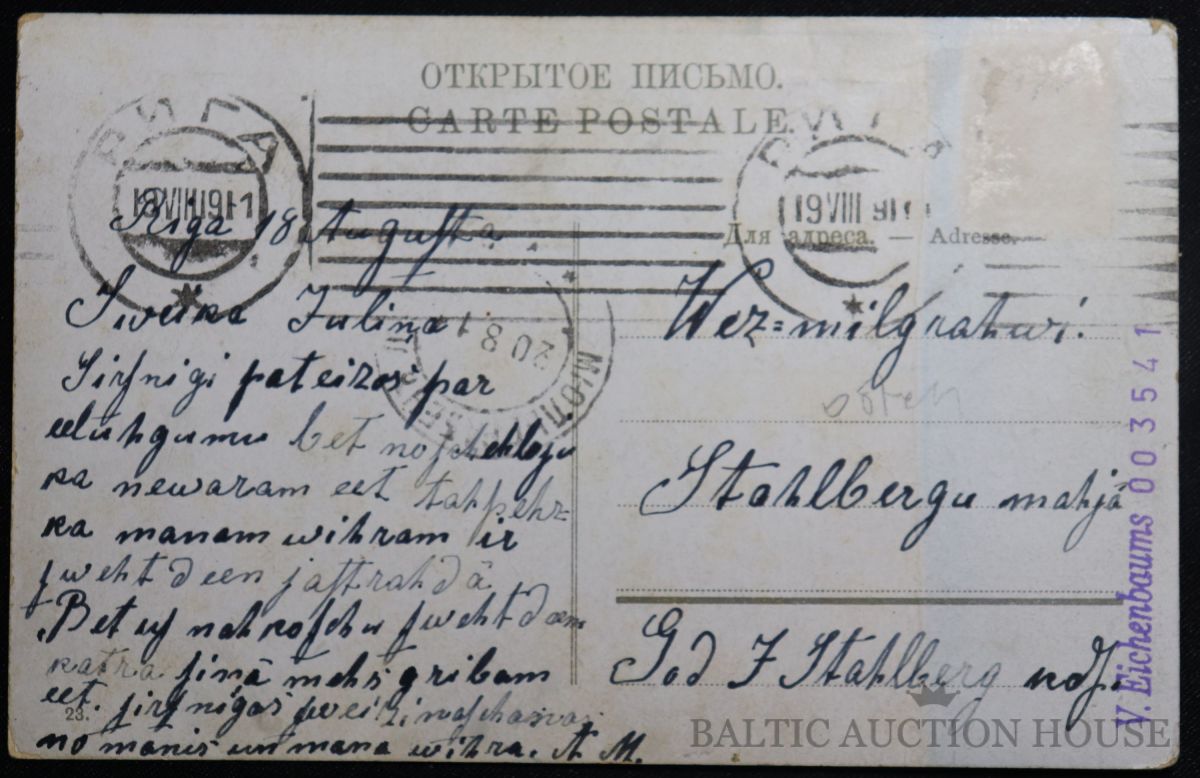 ОТКРЫТОЕ ПИСЬМО.
CARTE POSTALE.
РИГА
19 VIII 1911
РИГА
19 VIII 911
Для адреса. — Adresse.
20 8 1
Riga 18 Augusta
Sweika Julina
Sirsnigi pateizos par
eeluhgumu bet noschehloju
ka newaram eet tahpehz
ka manam wihram ir
swehtdeen jastrahdā
Bet us nahkoschu swehtdeen
katra sinā mehs gribam
eet. sirsnigas sweizinaschanas
no manis un mana wihra. A M.
23.
Wez=milgrahwi.
Stahlbergu mahjā
God J Stahlberg kdsi
V. Eichenbaums 003541
BALTIC AUCTION HOUSE